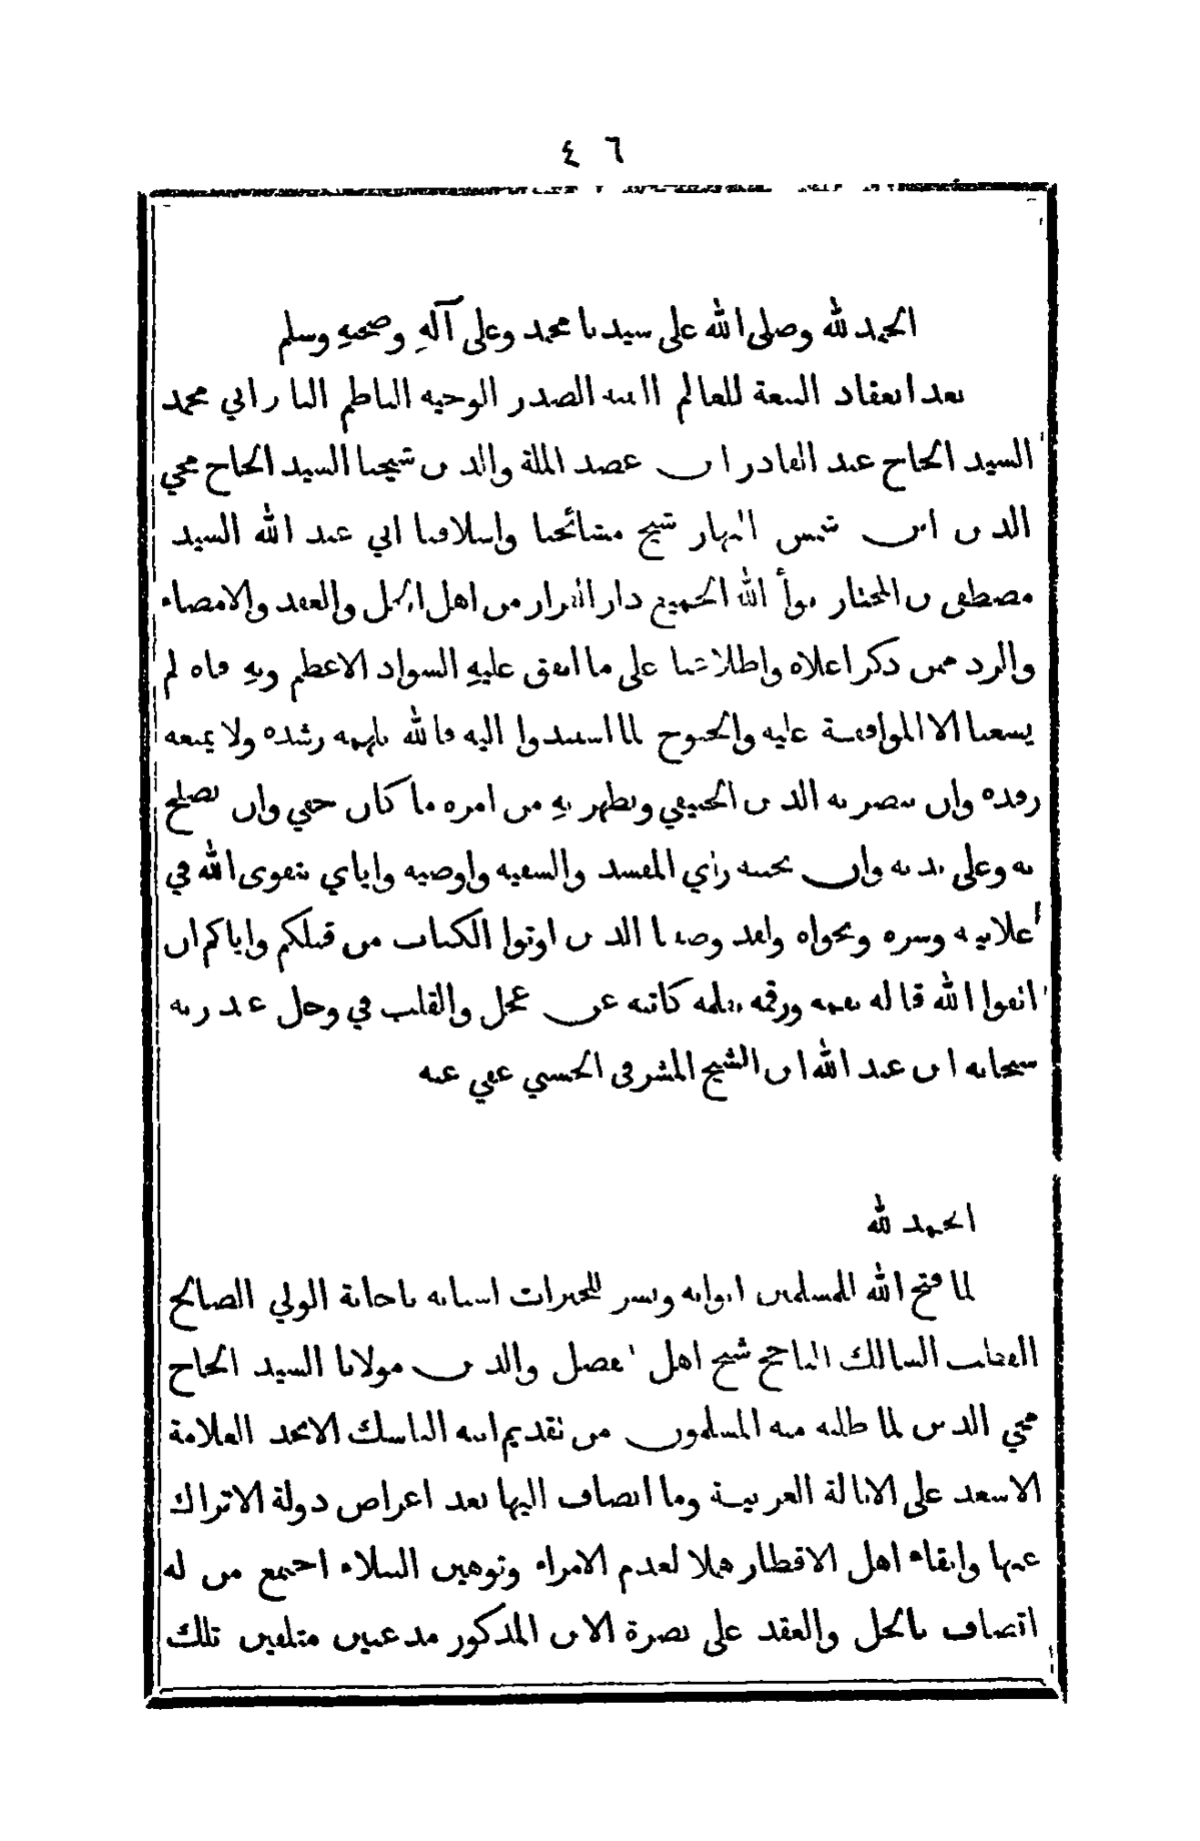 ٤٦
الحمد لله وصلى الله على سيدنا محمد وعلى آلهِ وصحبهِ وسلم
بعد انعقاد البيعة للعالم النبيه الصدر الوجيه الناظم الناثر ابي محمد
السيد الحاج عبد القادر ابن عضد الملة والدين شيخنا السيد الحاج محيي
الدين ابن شمس النهار شيخ مشائخنا واسلافنا ابي عبد الله السيد
مصطفى بن المختار بوأ الله الجميع دار القرار من اهل الحل والعقد والامضاء
والرد ممن ذكر اعلاه واطلاعنا على ما اتفق عليهِ السواد الاعظم وبهِ فاه لم
يسعنا الا الموافقة عليه والجنوح لما استندوا اليه فالله يلهمه رشده ولا يمنعه
رفده وان ينصر به الدين الحنيفي ويظهر بهِ من امره ما كان خفي وان يصلح
به وعلى يديه وان يجنبه رأي المفسد والسفيه واوصيه واياي بتقوى الله في
علانيته وسره ونجواه ولقد وصينا الذين اوتوا الكتاب من قبلكم واياكم ان
اتقوا الله قاله بفمه ورقمه بقلمه كاتبه عن عجل والقلب في وجل عبد ربه
سبحانه ابن عبد الله ابن الشيخ المشرفي الحسني عفي عنه
الحمد لله
لما فتح الله للمسلمين ابوابه ويسر للخيرات اسبابه باجابة الولي الصالح
القطب السالك الناجح شيخ اهل الفضل والدين مولانا السيد الحاج
محيي الدين لما طلبه منه المسلمون من تقديم ابنه الناسك الامجد العلامة
الاسعد على الايالة العربية وما انضاف اليها بعد اعراض دولة الاتراك
عنها وابقاء اهل الاقطار هملا لعدم الامراء وتوهين البلاء اجتمع من له
اتصاف بالحل والعقد على نصرة الابن المذكور مدعين متلقين تلك